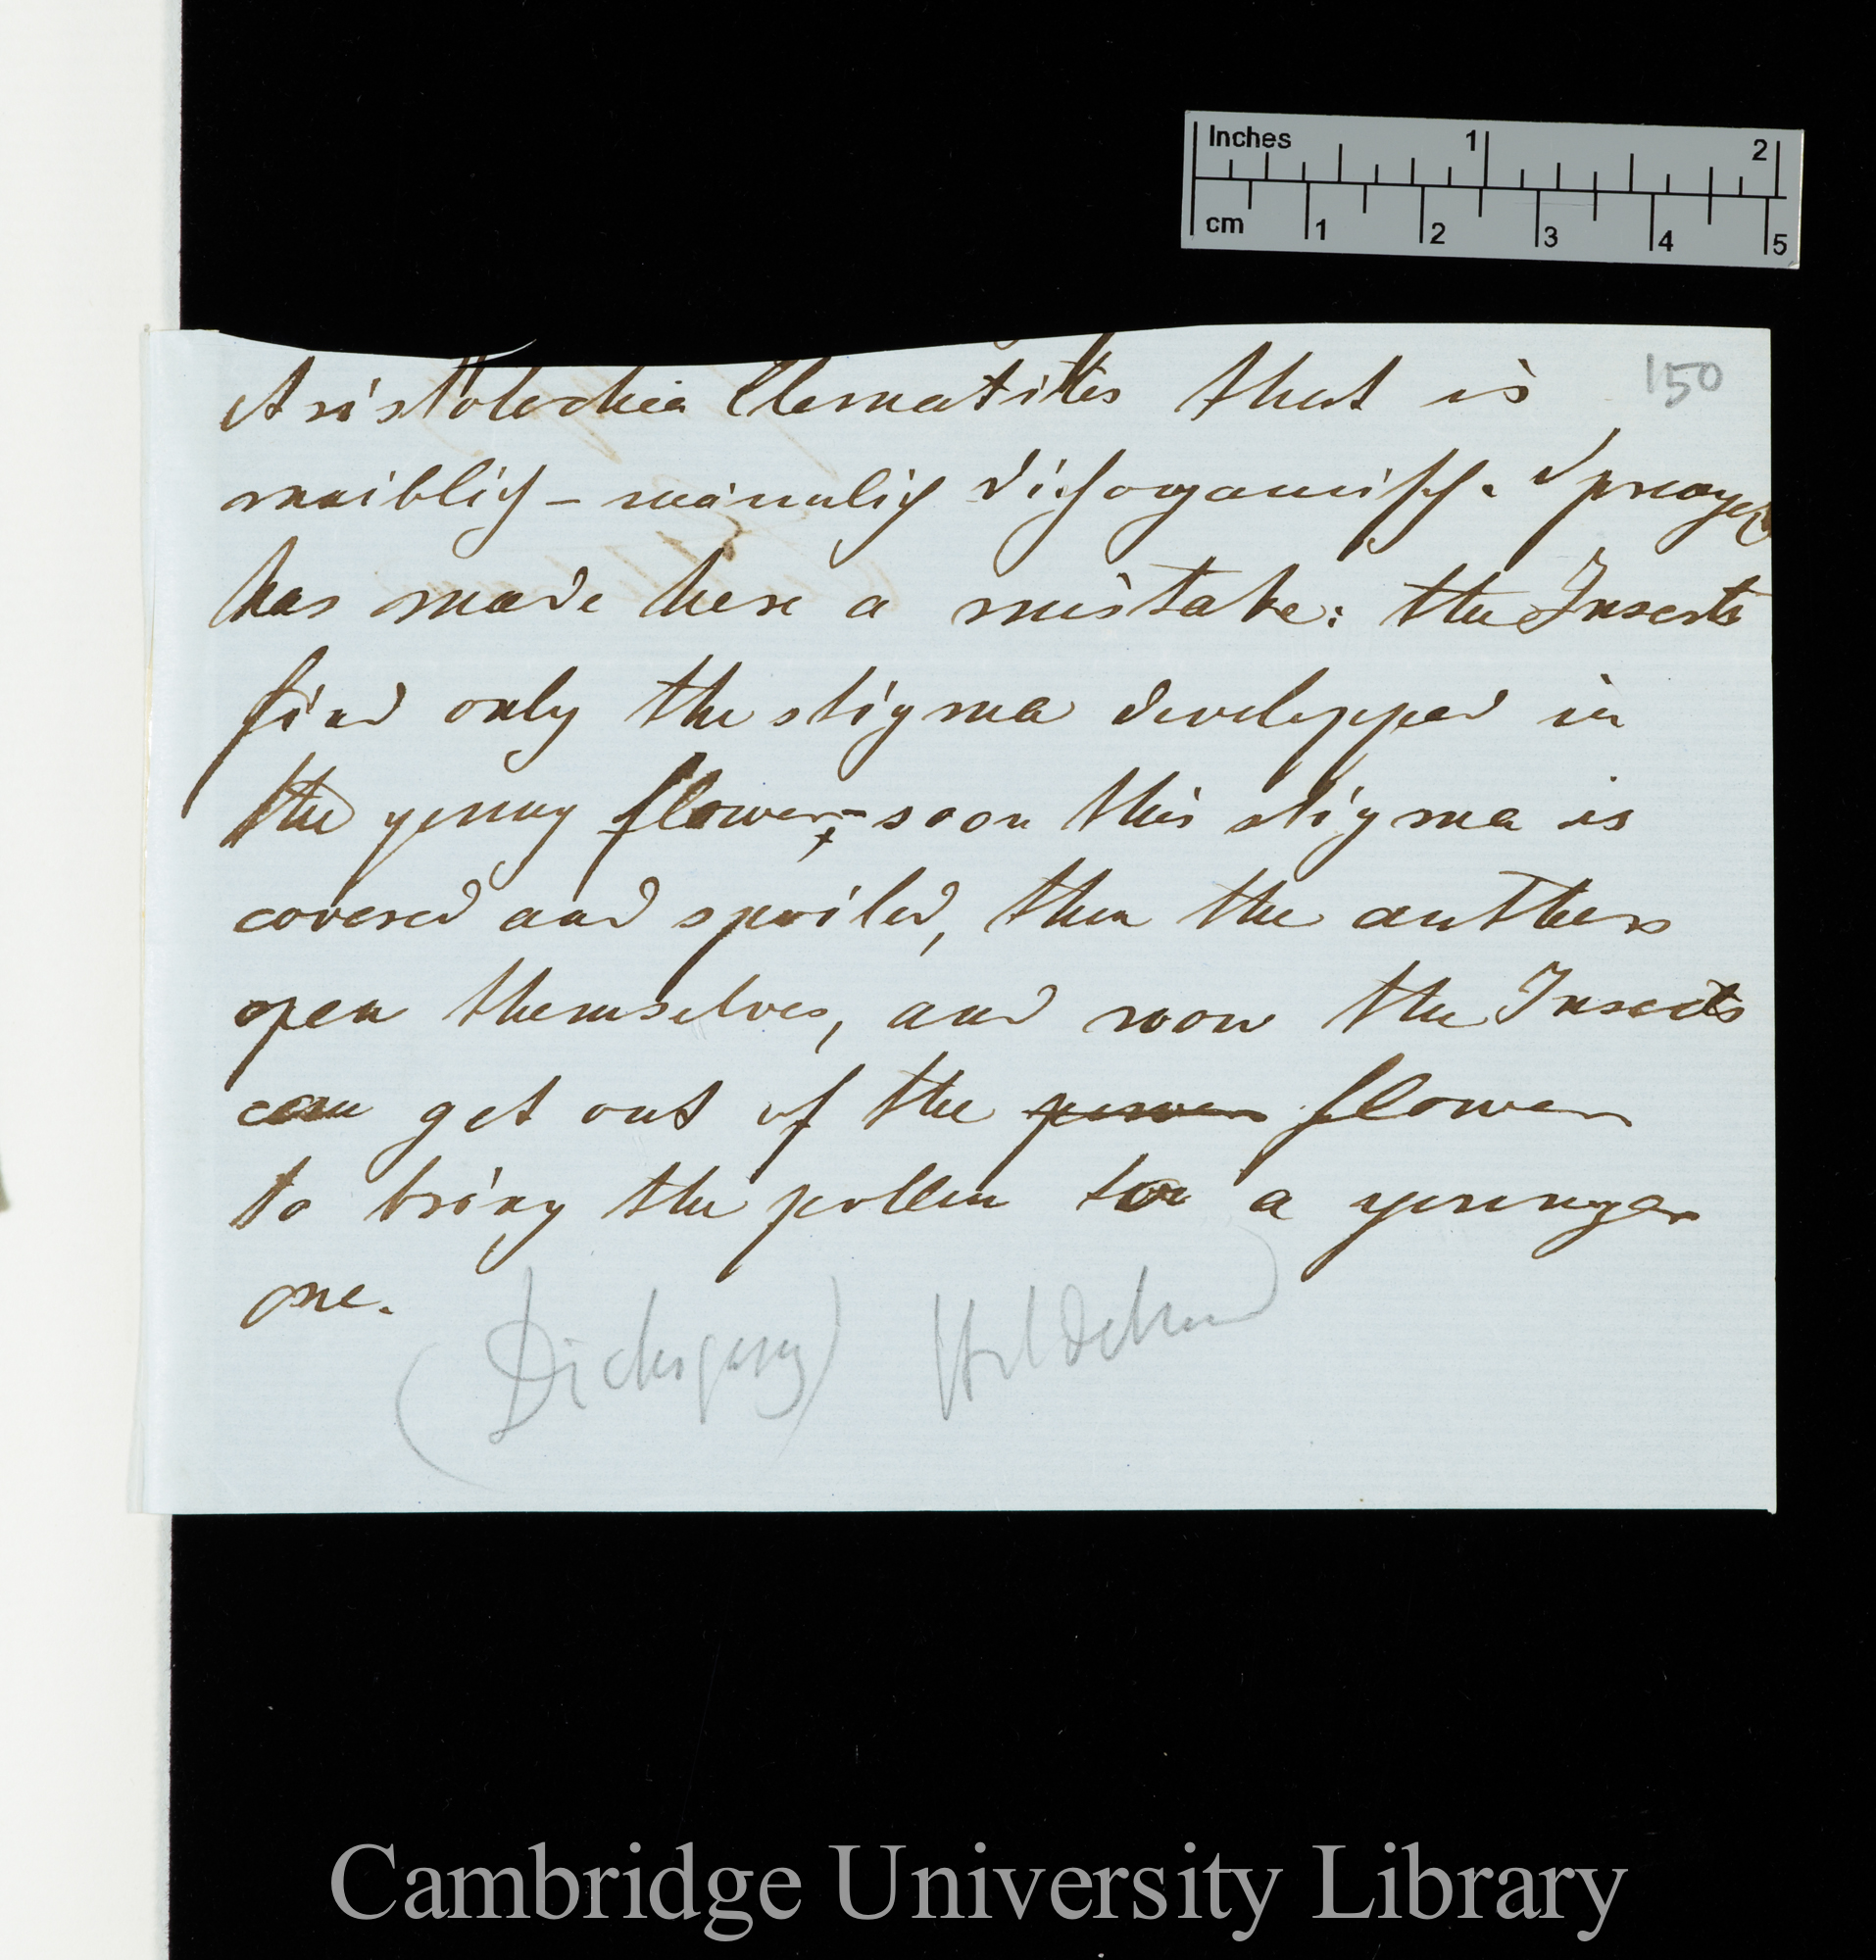 Inches 1 2
cm 1 2 3 4 5
150
Aristolochia Clematitis that is
weiblich - männlich dichogamisch. Sprengel
has made here a mistake: the Insects
find only the stigma developped in
the young flower - soon this stigma is
covered and spoiled, then the anthers
open themselves, and now the Insects
can get out of the flower
to bring the pollen to a younger
one.
(Dichogamy) Hildebrand
Cambridge University Library